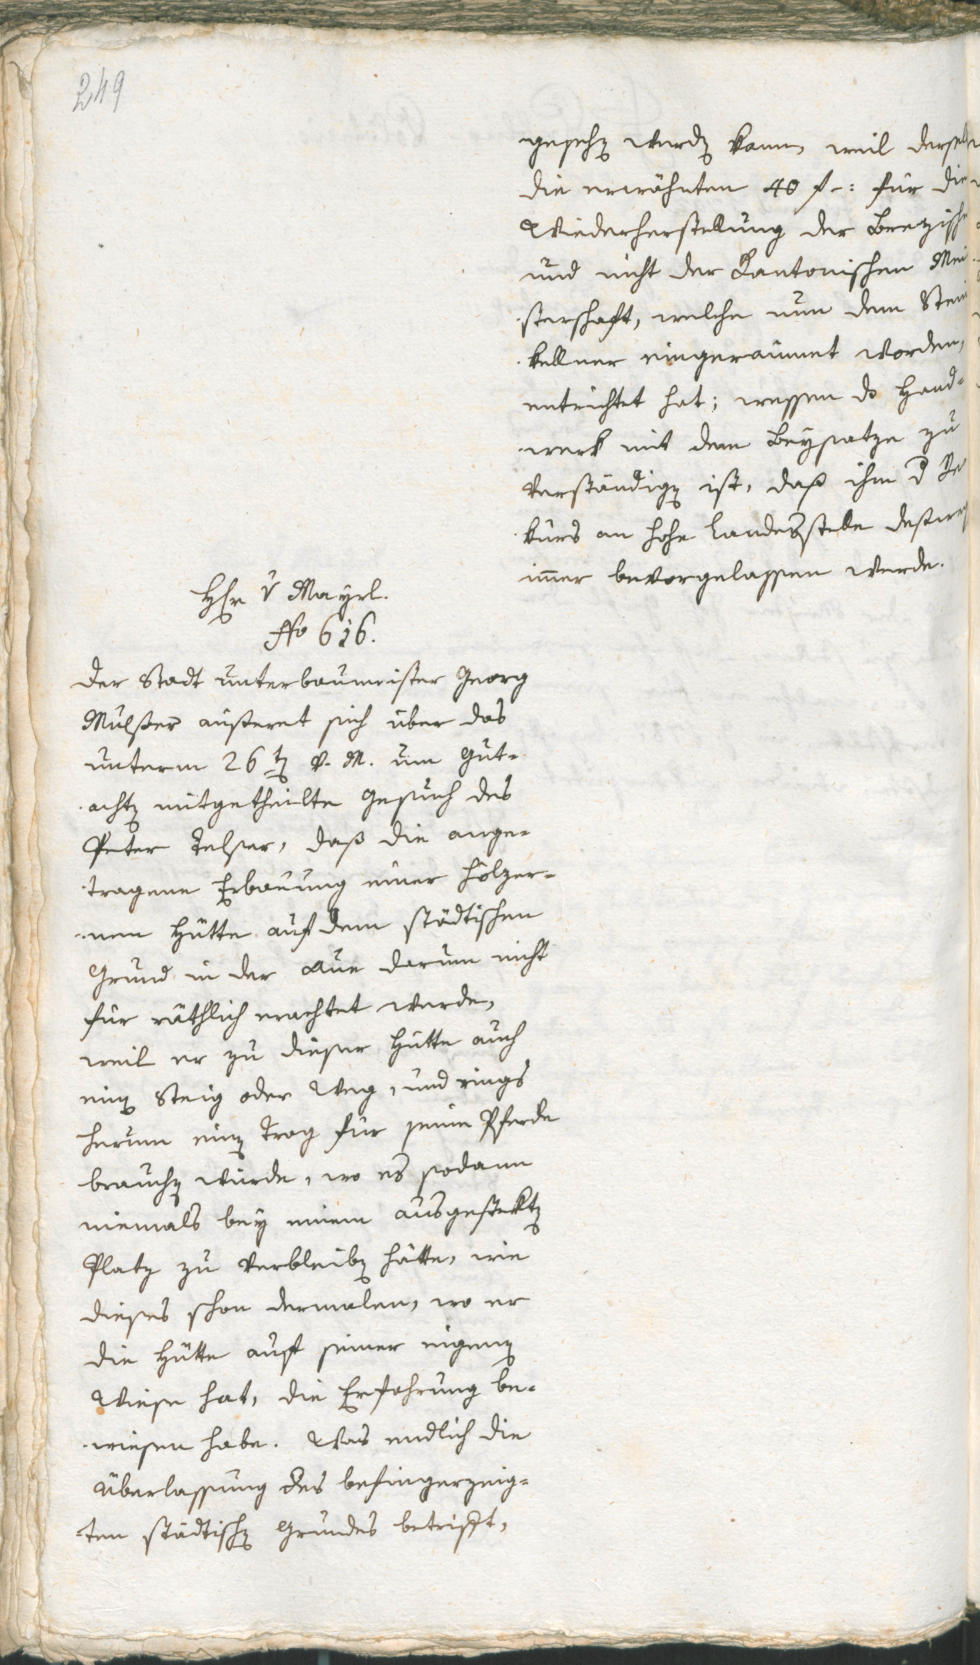 249
gesehen werden kann, weil derselbe
die erwähnten 40 f –: für die
Wiederherstellung der Brezisch
und nicht der Kantonischen Mei¬
sterschaft, welche nun dem Stein
kellner eingeraumet worden,
entrichtet hat; wessen ds Hand¬
werk mit dem Beysatze zu
verständigen ist, daß ihm d Re
kurs an hohe Landesstelle destweg
immer bevorgelassen werde.
H. v Mayrl.
No 616.
Der Stadt unterbaumeister Georg
Mülsser äusseret sich über das
unterm 26ten v. M. um Gut¬
achten mitgetheilte Gesuch des
Peter Telser, daß die ange¬
tragene Erbauung einer hölzer¬
nen Hütte auf dem städtischen
Grund in der Aue darum nicht
für räthlich erachtet werde,
weil er zu dieser Hütte auch
einen Steig oder Weg, und rings
herum einen Trog für seine Pferde
brauchen würde, wo es sodann
niemals bey einem ausgesteckten
Platz zu verbleiben hätte, wie
dieses schon dermalen, wo er
die Hütte auf seiner eigenen
Wiese hat, die Erfahrung be¬
wiesen habe. Was endlich die
Überlassung des befingerzeig¬
ten städtischen Grundes betrifft,